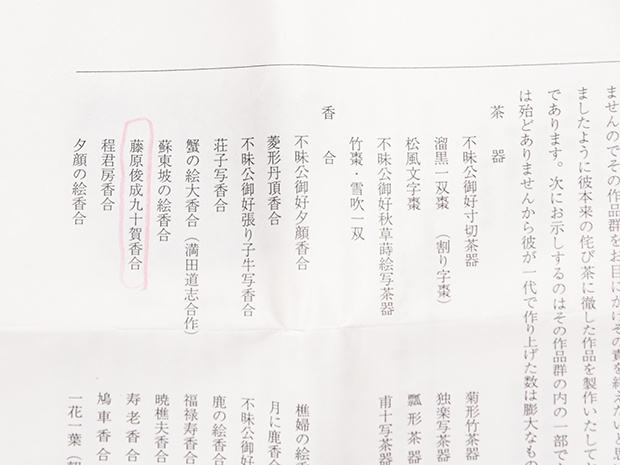 ませんのでその作品群をお目にかけその責を終えたいと思
ましたように彼本来の侘び茶に徹した作品を製作いたして
であります。次にお示しするのはその作品群の内の一部で
は殆どありませんから彼が一代で作り上げた数は膨大なもの
茶器
不昧公御好寸切茶器
溜黒一双棗（割り字棗）
松風文字棗
不昧公御好秋草蒔絵写茶器
竹棗・雪吹一双
菊形竹茶器
独楽写茶器
瓢形茶器
甫十写茶器
香合
不昧公御好夕顔香合
菱形丹頂香合
不昧公御好張り子牛写香合
荘子写香合
蟹の絵大香合（満田道志合作）
蘇東坡の絵香合
藤原俊成九十賀香合
程君房香合
夕顔の絵香合
樵婦の絵香
月に鹿香合
不昧公御好
鹿の絵香合
福禄寿香合
暁樵夫香合
寿老香合
鳩車香合
一花一葉（